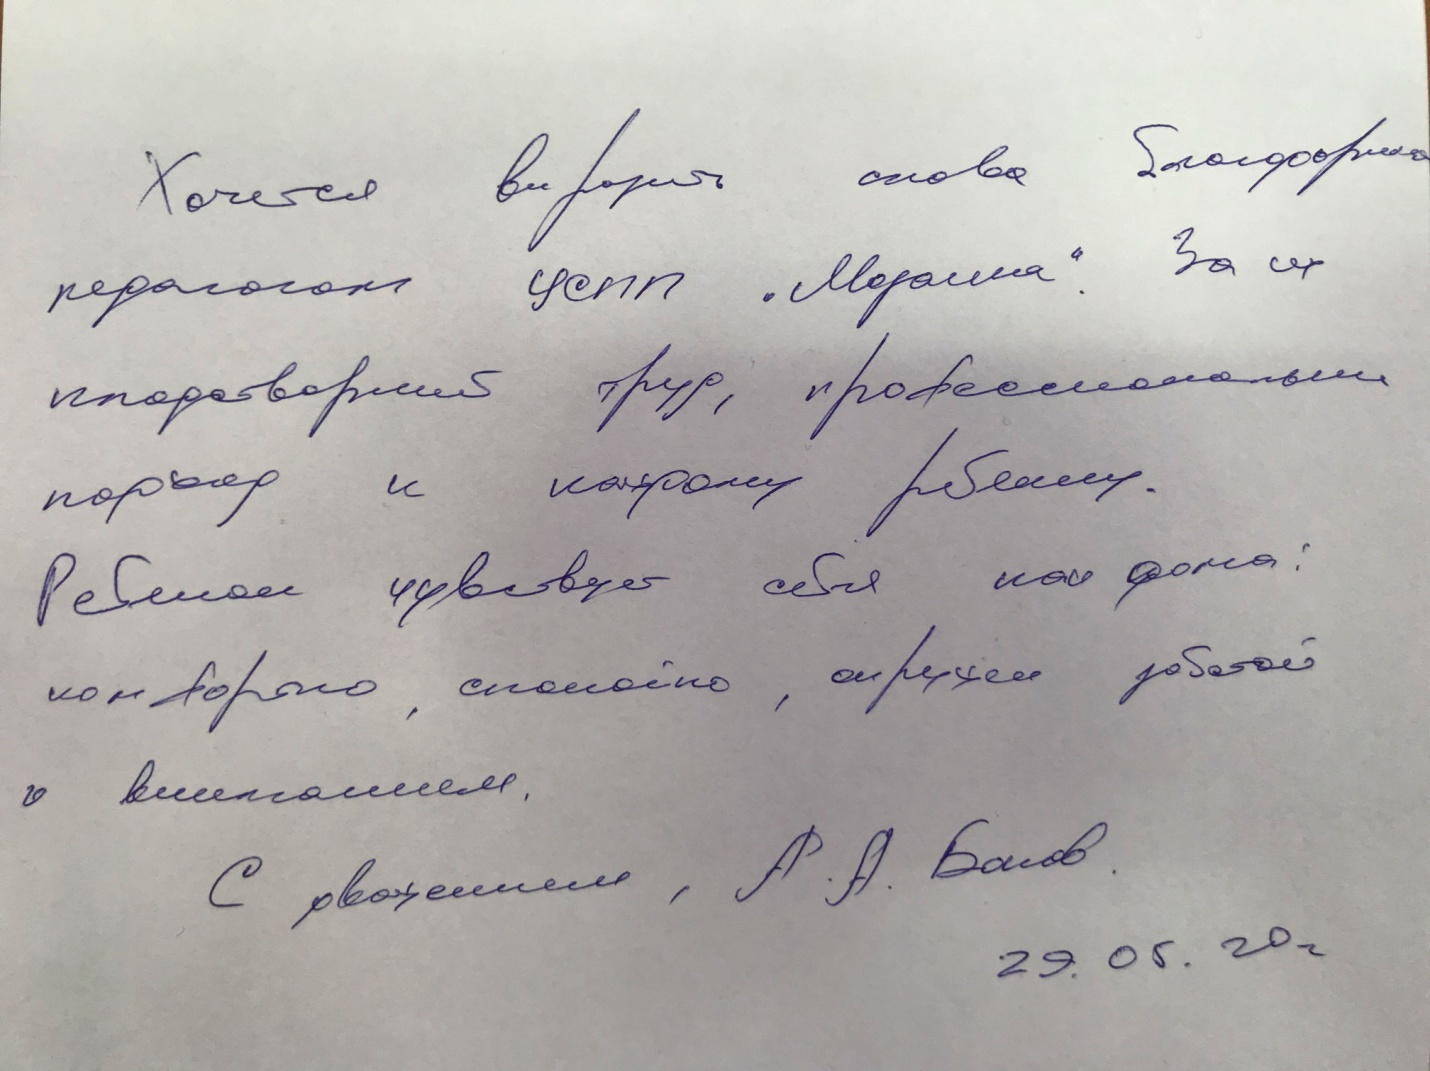 Хочется выразить слова благодарно
педагогам ЦСПП „Мозаика“. За их
плодотворный труд, профессиональный
подход к каждому ребенку.
Ребенок чувствует себя как дома:
комфортно, спокойно, окружен заботой
и вниманием.
С уважением, А. А.
29.05.20г